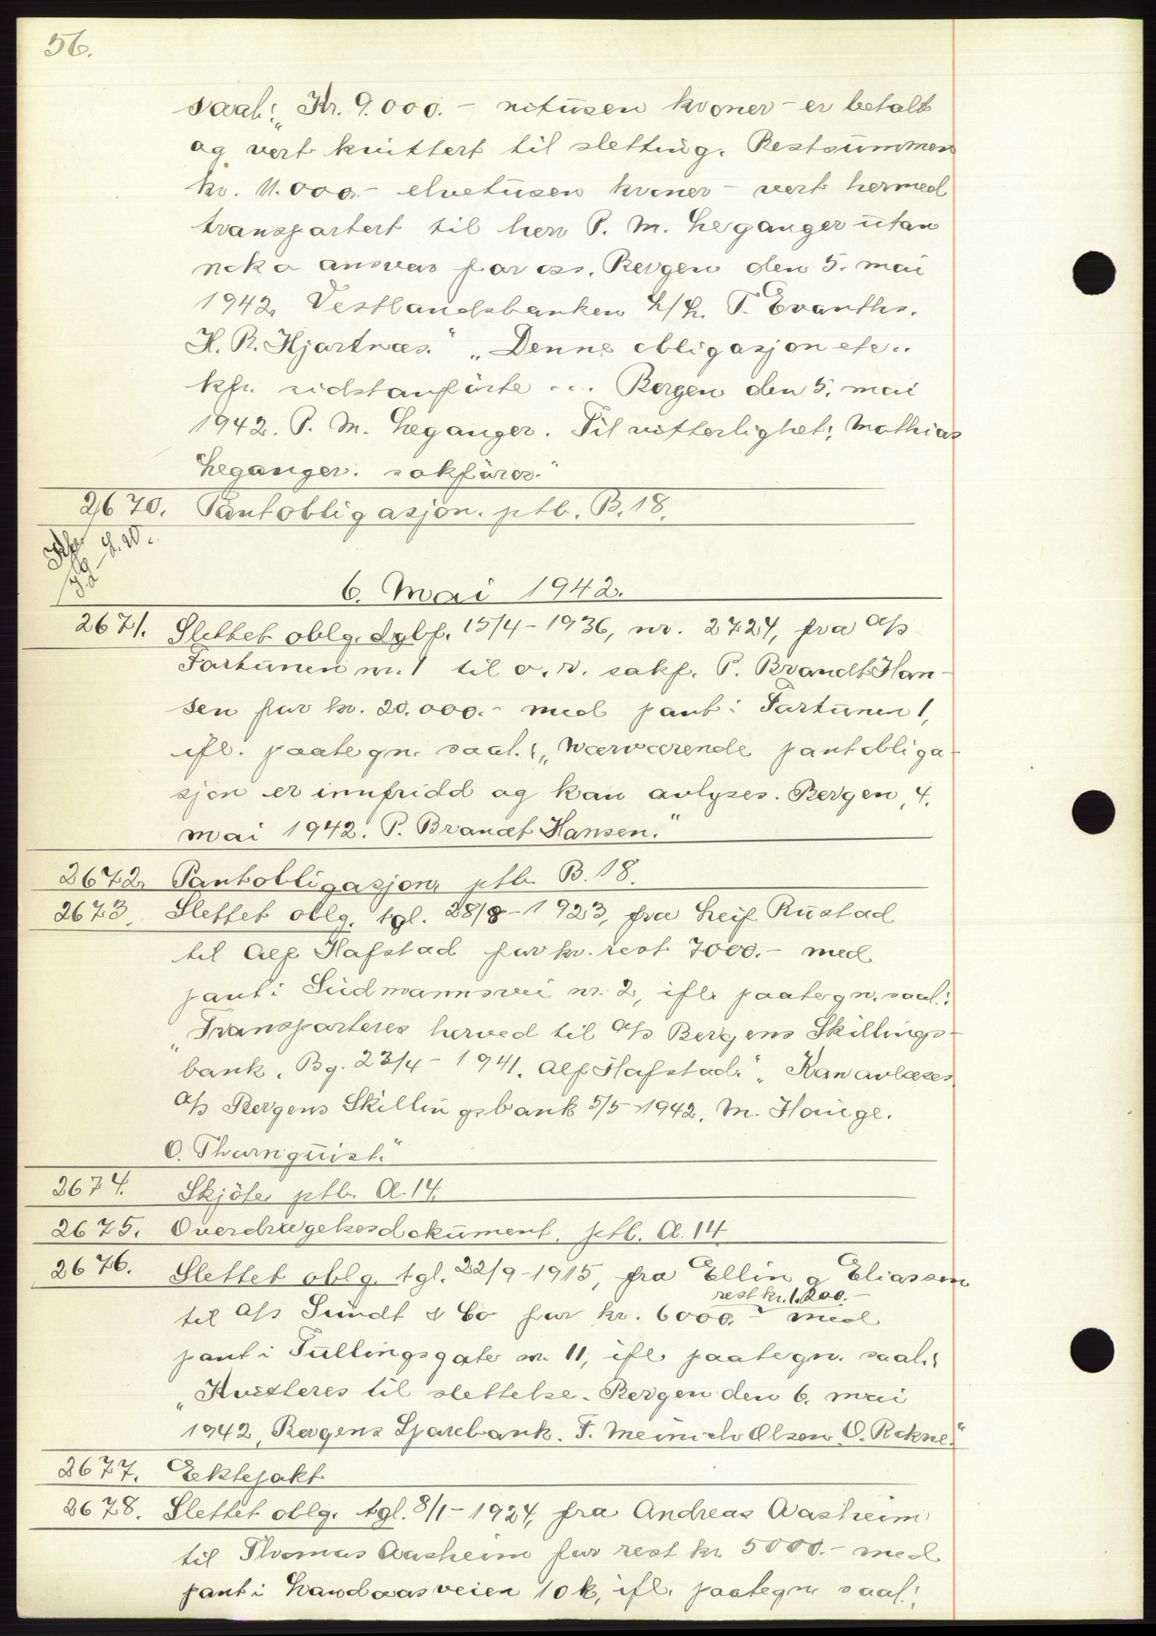 56.
saal: „Kr. 9.000.- nitusen kroner - er betalt
og vert kvittert til sletting. Restsummen
kr. 11.000.- elvetusen kroner - vert hermed
transportert til herr P. M. Leganger utan
noko ansvar for oss. Bergen den 5. mai
1942. Vestlandsbanken L/L. T. Evanths.
H. R. Kjartnæs." „Denne obligasjon etc..
kfr. sidstanførte ... Bergen den 5. mai
1942. P. M. Leganger. Til vitterlighet: Mathias
Leganger. sakførar."
2670. Pantobligasjon. ptb. B. 18.
6. Mai 1942.
2671. Slettet oblg. dgbf. 15/4-1936, nr. 2724, fra A/s
Fortunen nr. 1 til o. r. sakf. P. Brandt Han-
sen for kr. 20.000.- med pant i Fortunen 1,
ifl. paategn. saal.: „Nærværende pantobliga-
sjon er innfridd og kan avlyses. Bergen, 4.
mai 1942. P. Brandt Hansen."
2672. Pantobligasjon ptb B. 18.
2673. Slettet oblg. tgl. 28/8-1923, fra Leif Rustad
til Alf Hafstad for kr. rest 7000.- med
pant i Sudmannsvei nr. 2, ifl. paategn. saal.:
„Transporteres herved til A/s Bergens Skillings-
bank. Bg. 23/4-1941. Alf Hafstad." „Kan avlæses.
A/s Bergens Skillingsbank 5/5-1942. M. Hauge.
O. Thornquist."
2674. Skjøte, ptb. A. 14.
2675. Overdragelsesdokument, ptb. A. 14
2676. Slettet oblg. tgl. 22/9-1915, fra Ellin g Eliassen
rest kr. 1.200.-
til A/s Sundt & Co for kr. 6000.- med
pant i Tullingsgate nr. 11, ifl paategn. saal.:
„Kvitteres til slettelse. Bergen den 6. mai
1942, Bergens Sparebank. F. Meinich Olsen. O. Rekne."
2677. Ektepakt
2678. Slettet oblg. tgl. 8/1-1924, fra Andreas Aasheim
til Thomas Aasheim for rest kr 5000.- med
pant i Landaasveien 10 k, ifl. paategn saal.: